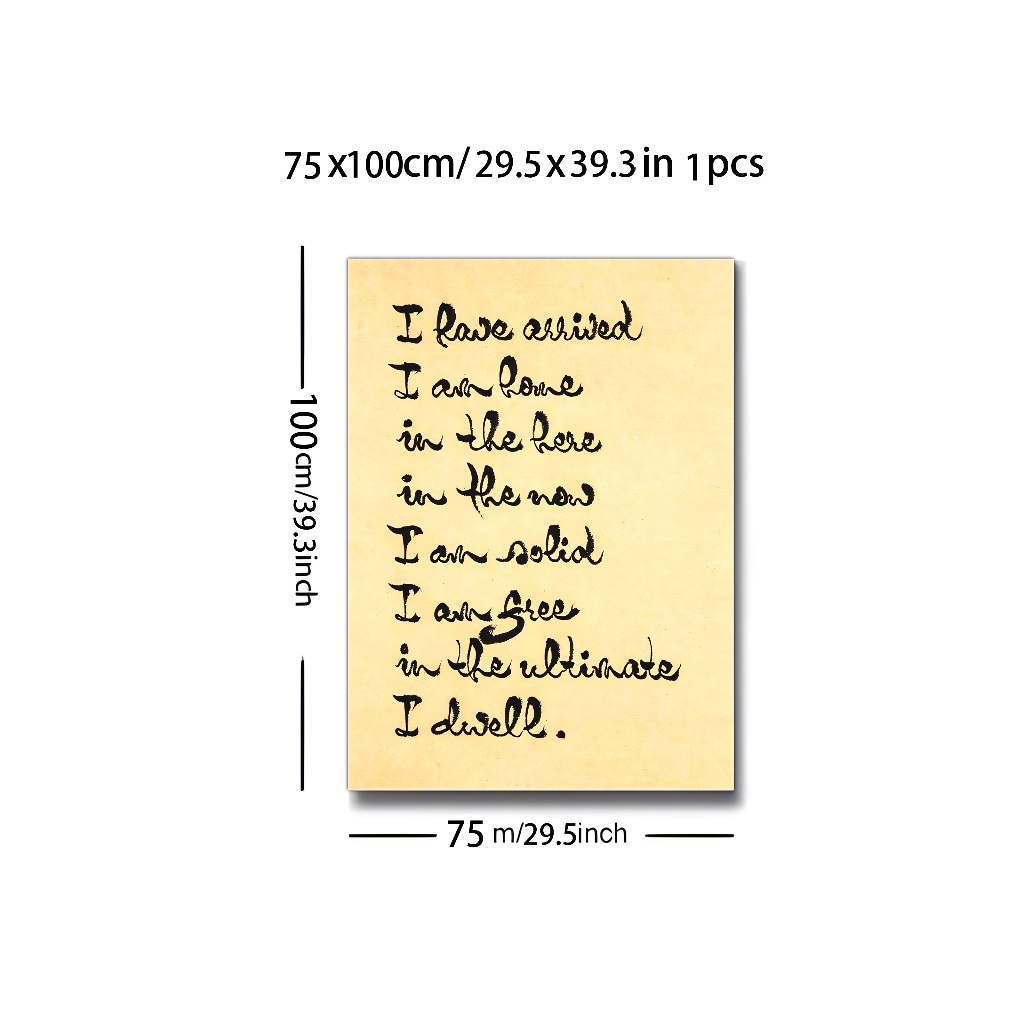 75x100cm/29.5x39.3in 1pcs
100cm/39.3inch
I have arrived
I am home
in the here
in the now
I am solid
I am free
in the ultimate
I dwell.
75 m/29.5inch